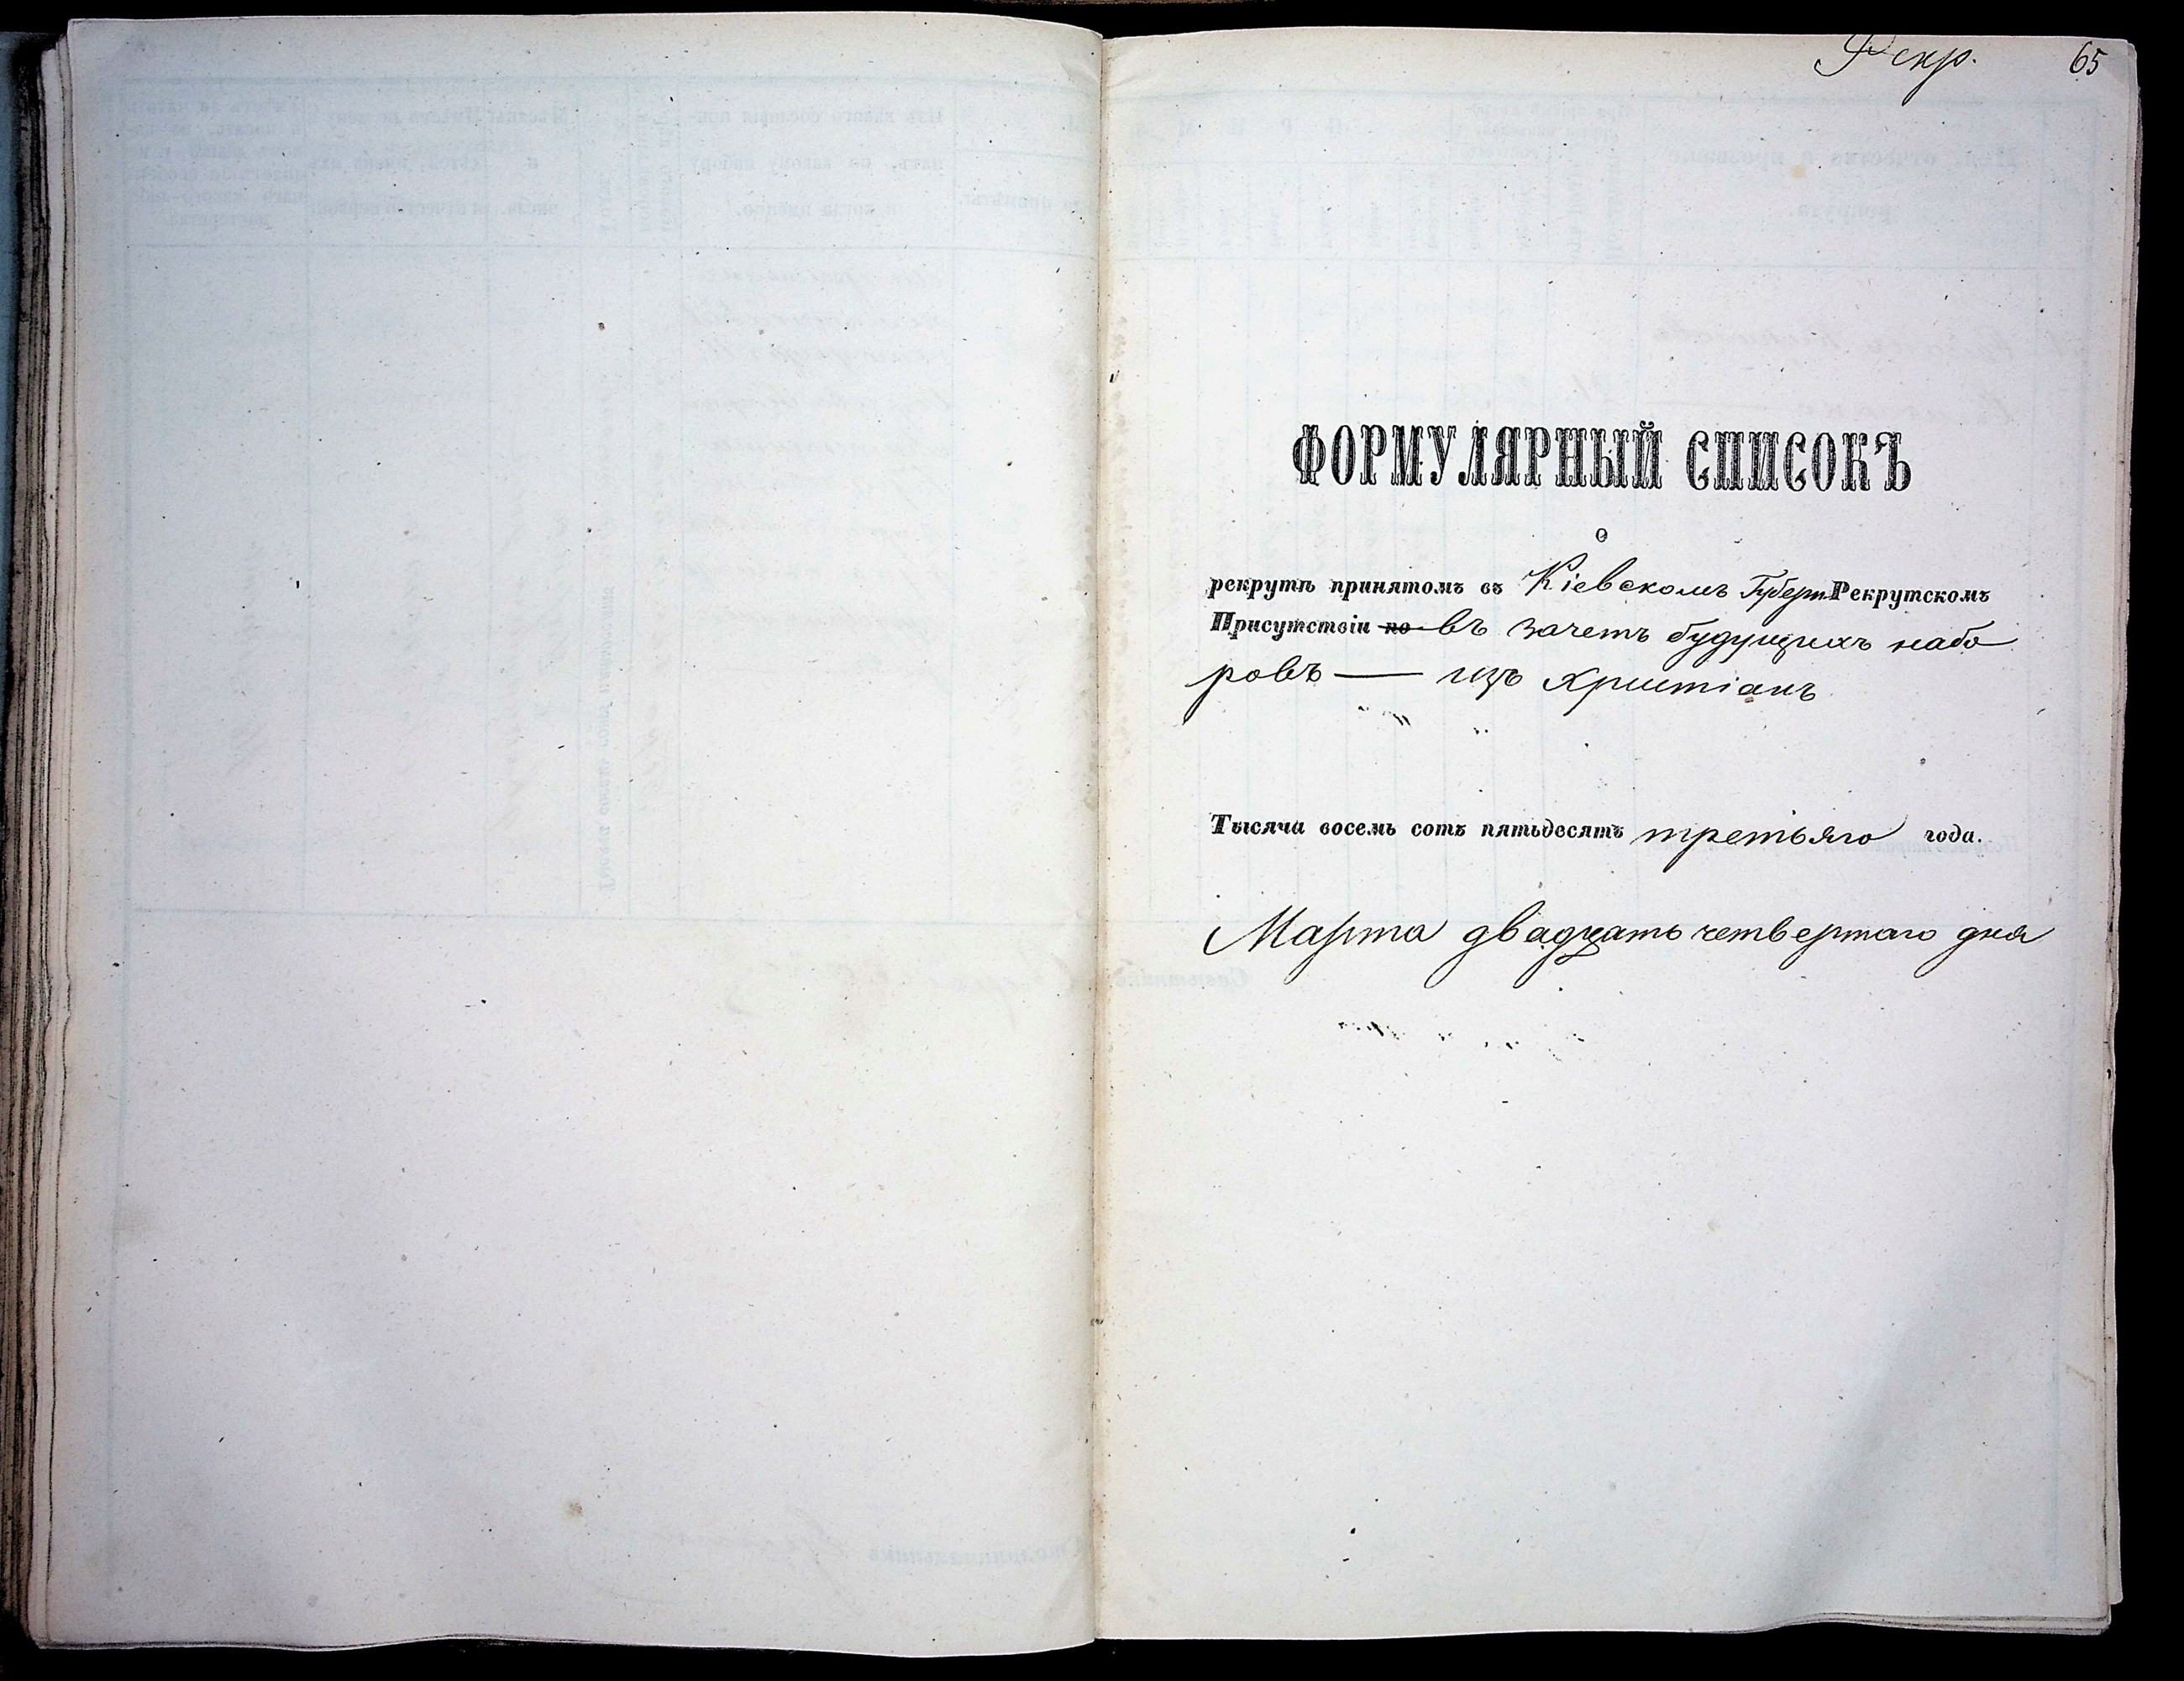 Рекр. 65
ФОРМУЛЯРНЫЙ СПИСОКЪ
о
рекрутѣ принятомъ въ Кіевскомъ Губерн Рекрутскомъ
Присутствіи по въ зачетъ будущихъ набо
ровъ — изъ христіанъ
Тысяча восемь сотъ пятьдесятъ третьяго года.
Марта двадцать четвертаго дня